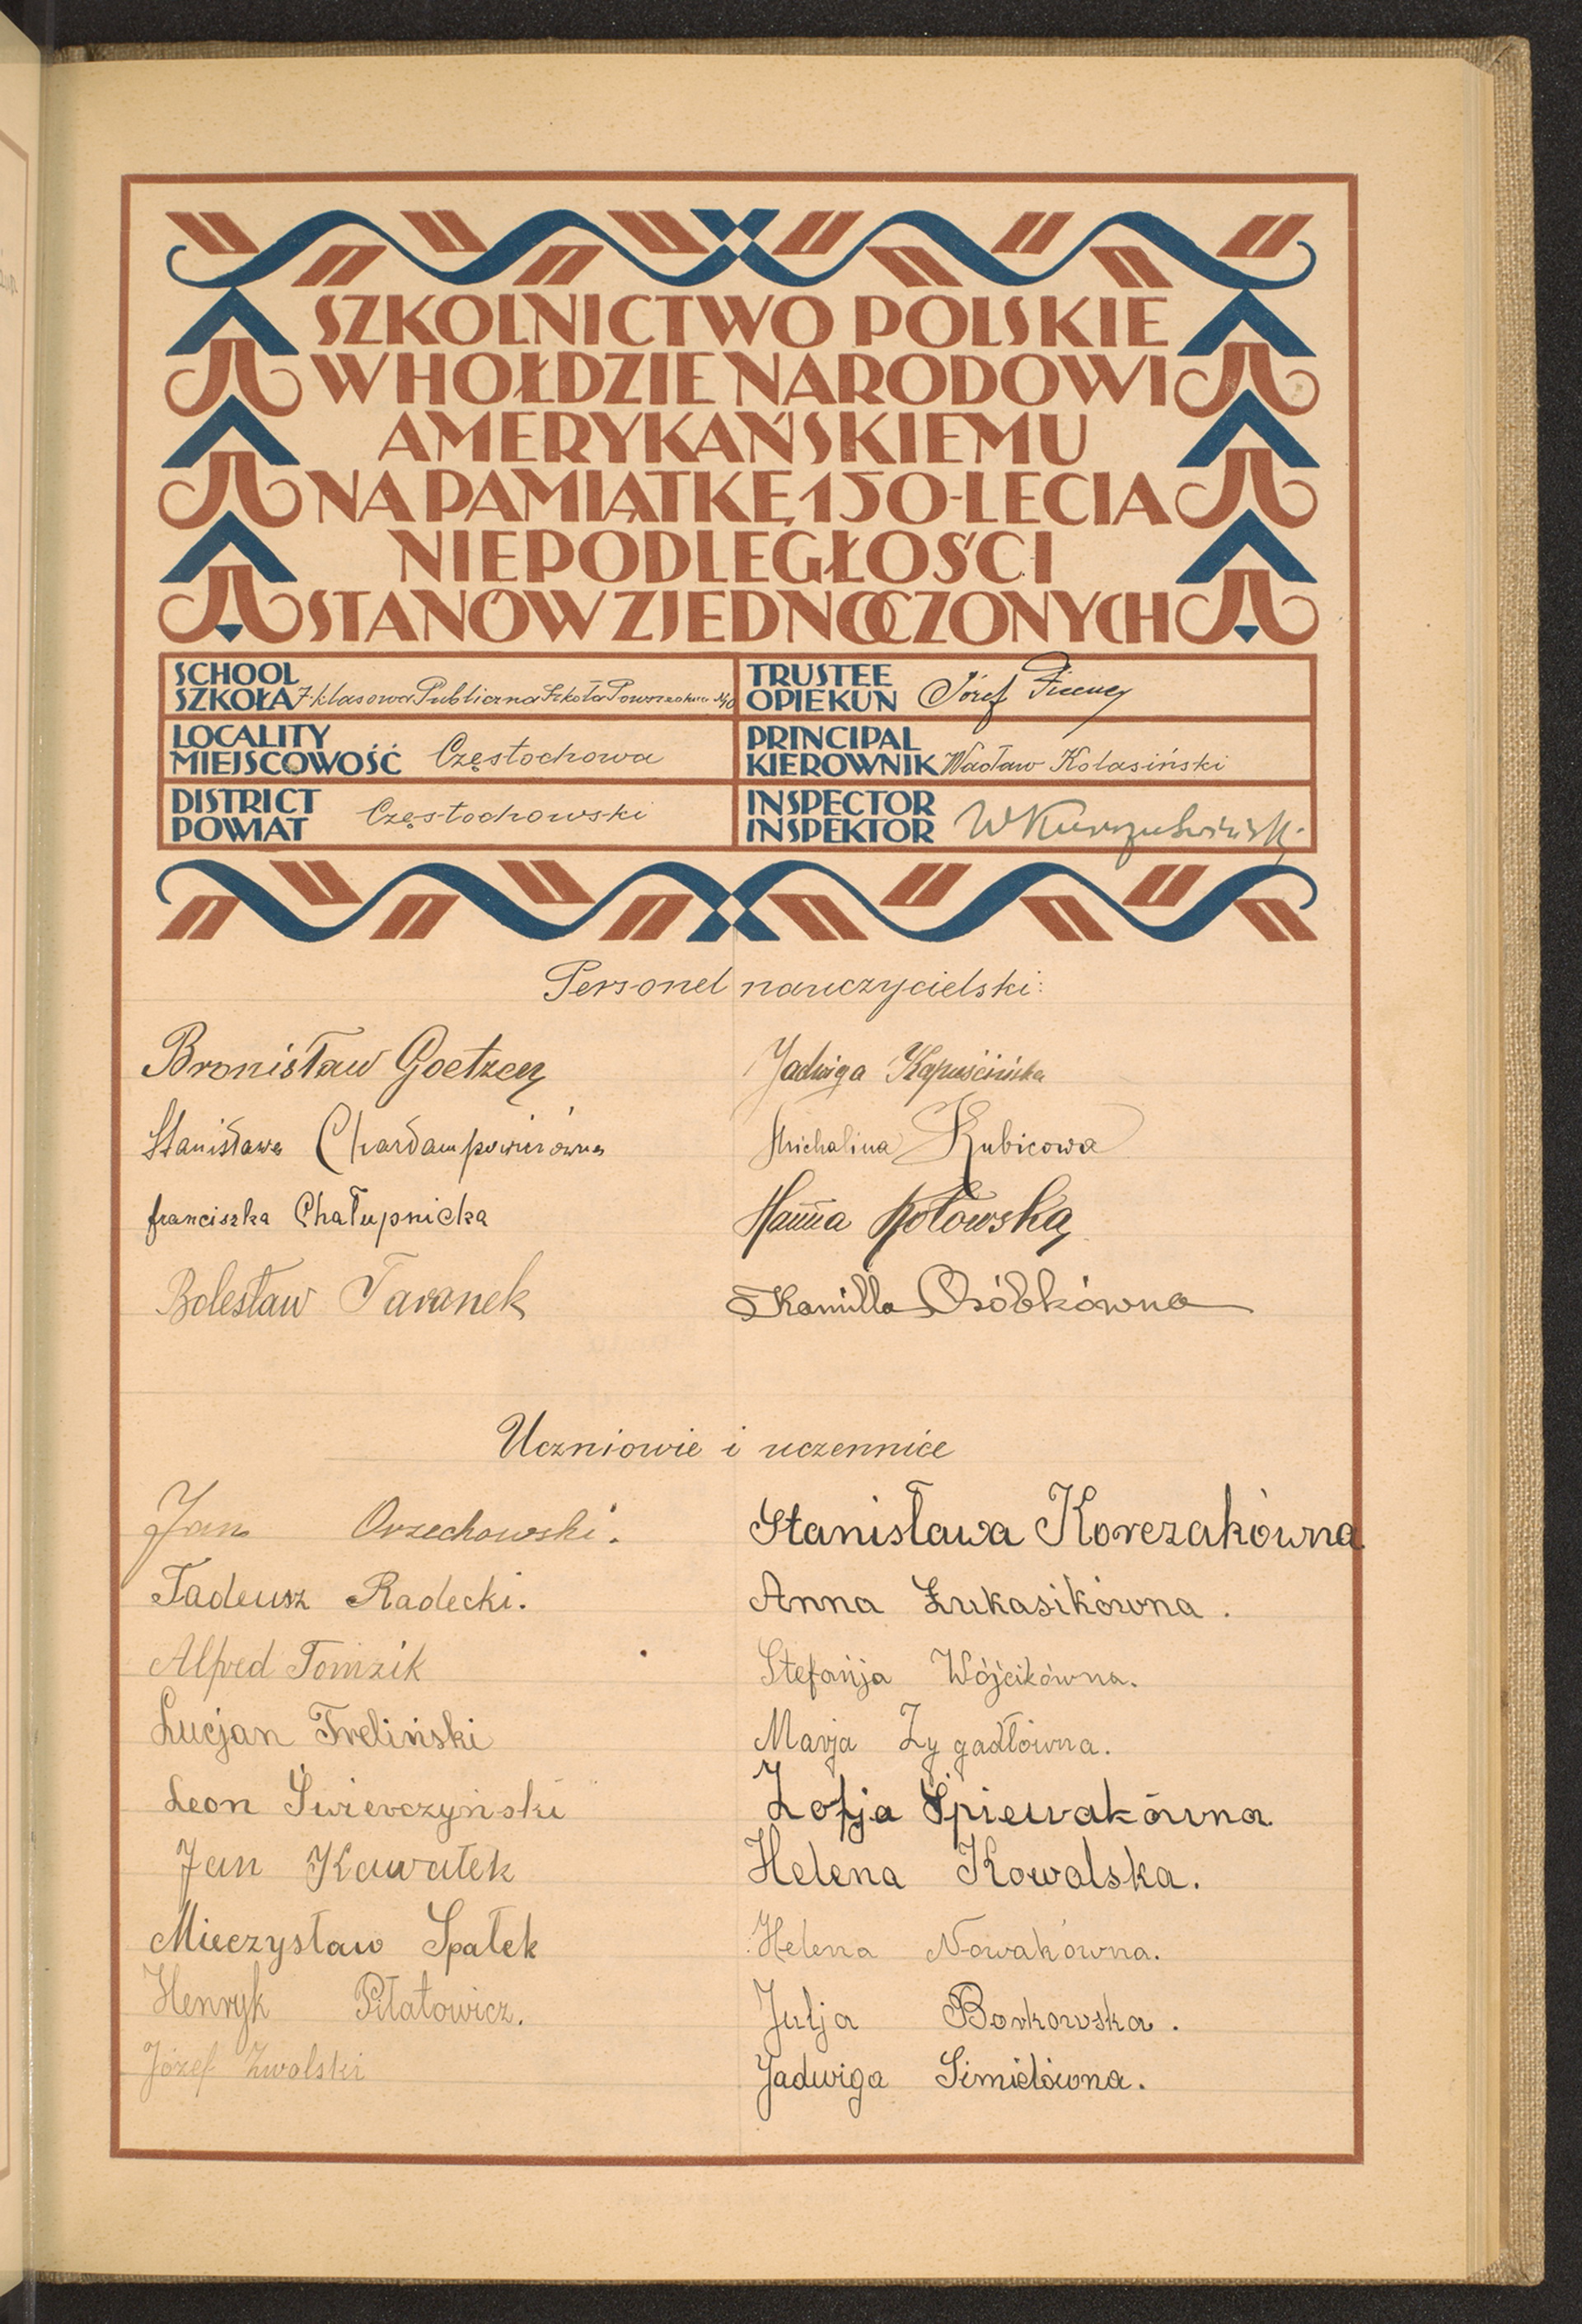 SZKOLNICTWO POLSKIE
W HOŁDZIE NARODOWI
AMERYKAŃSKIEMU
NA PAMIĄTKĘ 150-LECIA
NIEPODLEGŁOŚCI
STANÓW ZJEDNOCZONYCH
SCHOOL
SZKOŁA 7-klasowa Publiczna Szkoła Powszechna
TRUSTEE
OPIEKUN Józef
LOCALITY
MIEJSCOWOŚĆ Częstochowa
PRINCIPAL
KIEROWNIK Wacław Kolasiński
DISTRICT
POWIAT Częstochowski
INSPECTOR
INSPEKTOR
Personel nauczycielski:
Bronisław Goetzen
Jadwiga Kapuścińska
Stanisława
Michalina Kubicowa
Franciszka Chałupnicka
Hanna Kotowska
Bolesław Taranek
Kamilla Osóbkówna
Uczniowie i uczennice
Jan Orzechowski.
Stanisława Korczakówna
Tadeusz Radecki.
Anna Łukasikówna.
Alfred Tomzik
Stefanja Wójcikówna.
Lucjan Treliński
Marja Zygadłówna.
Leon Świerczyński
Zofja Śpiewakówna.
Jan Kawałek
Helena Kowalska.
Mieczysław Spałek
Helena Nowakówna.
Henryk Piłatowicz.
Julja Borkowska.
Józef Zwolski
Jadwiga Simielówna.